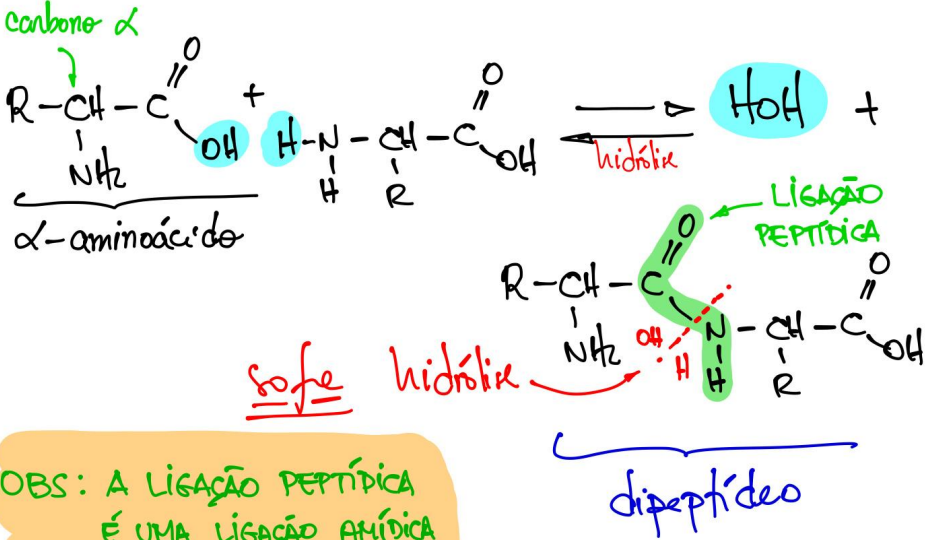 carbono α
R-CH-C
O
OH
NH₂
+
H-N-CH-C
O
OH
H
R
HOH +
hidrólise
α-aminoácido
LIGAÇÃO
PEPTÍDICA
R-CH-C
O
NH₂
OH
H
N-CH-C
O
OH
H
R
sofre hidrólise
dipeptídeo
OBS: A LIGAÇÃO PEPTÍDICA
É UMA LIGAÇÃO AMÍDICA